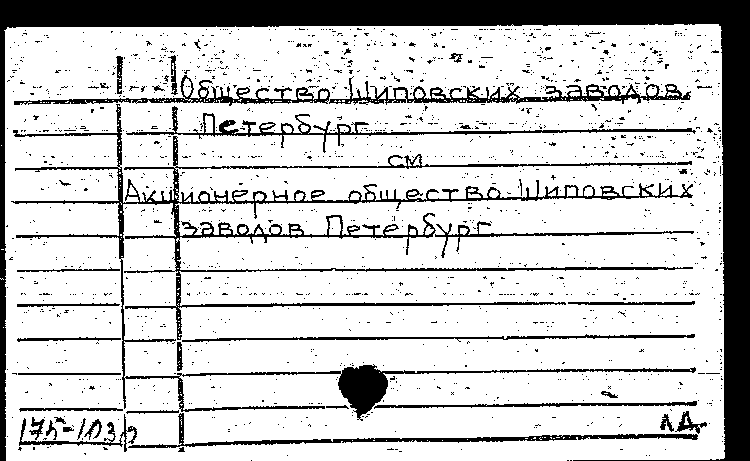 Общество Шиповских заводов.
Петербург
см
Акционерное общество Шиповских
заводов Петербург
175-103р
Л.Д.